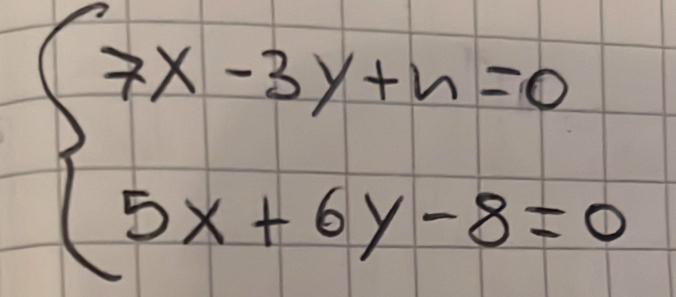 7x - 3y + n = 0
5x + 6y - 8 = 0